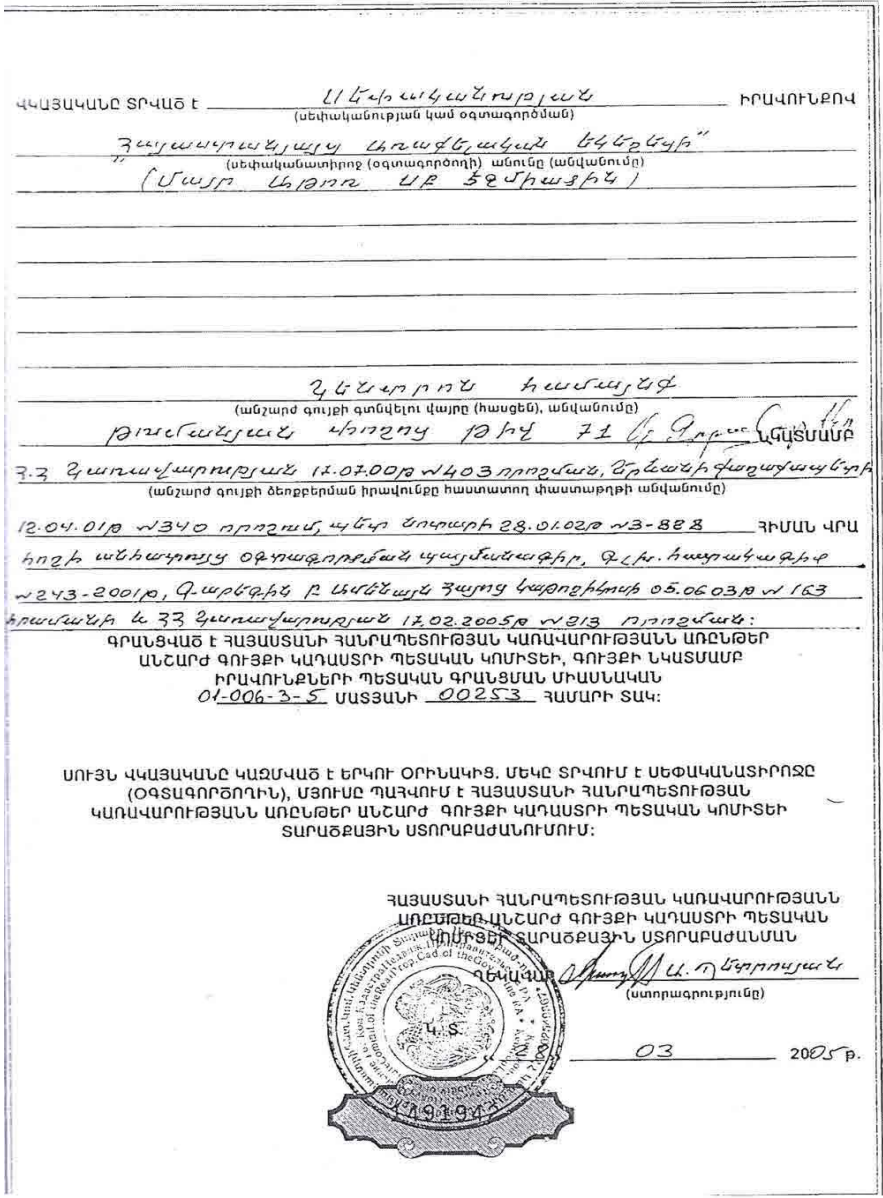 ՎԿԱՅԱԿԱՆԸ ՏՐՎԱԾ Է Սեփականության ԻՐԱՎՈՒՆՔՈՎ
(սեփականության կամ օգտագործման)
"Հայաստանյայց Առաքելական Եկեղեցի"
(սեփականատիրոջ (օգտագործողի) անունը (անվանումը)
(Մայր Աթոռ Սբ Էջմիածին)
Կենտրոն համայնք
(անշարժ գույքի գտնվելու վայրը (հասցեն), անվանումը)
Թումանյան փողոց թիվ 71 ՆԿԱՏՄԱՄԲ
Հ.Հ Կառավարության 17.07.00թ N403 որոշման, Երևանի քաղաքապետի
(անշարժ գույքի ձեռքբերման իրավունքը հաստատող փաստաթղթի անվանումը)
12.04.01թ N340 որոշում, պետ նոտարի 28.01.02թ N3-888 ՀԻՄԱՆ ՎՐԱ
հողի անհատույց օգտագործման պայմանագիր, Գլխ. հատակագիծ
N243-2001թ, Գարեգին Բ Ամենայն Հայոց կաթողիկոսի 05.0603թ N163
հրամանի և ՀՀ Կառավարության 17.02.2005թ N213 որոշման:
ԳՐԱՆՑՎԱԾ Է ՀԱՅԱՍՏԱՆԻ ՀԱՆՐԱՊԵՏՈՒԹՅԱՆ ԿԱՌԱՎԱՐՈՒԹՅԱՆՆ ԱՌԸՆԹԵՐ
ԱՆՇԱՐԺ ԳՈՒՅՔԻ ԿԱԴԱՍՏՐԻ ՊԵՏԱԿԱՆ ԿՈՄԻՏԵԻ, ԳՈՒՅՔԻ ՆԿԱՏՄԱՄԲ
ԻՐԱՎՈՒՆՔՆԵՐԻ ՊԵՏԱԿԱՆ ԳՐԱՆՑՄԱՆ ՄԻԱՍՆԱԿԱՆ
01-006-3-5 ՄԱՏՅԱՆԻ 00253 ՀԱՄԱՐԻ ՏԱԿ:
ՍՈՒՅՆ ՎԿԱՅԱԿԱՆԸ ԿԱԶՄՎԱԾ Է ԵՐԿՈՒ ՕՐԻՆԱԿԻՑ. ՄԵԿԸ ՏՐՎՈՒՄ Է ՍԵՓԱԿԱՆԱՏԻՐՈՋԸ
(ՕԳՏԱԳՈՐԾՈՂԻՆ), ՄՅՈՒՍԸ ՊԱՀՎՈՒՄ Է ՀԱՅԱՍՏԱՆԻ ՀԱՆՐԱՊԵՏՈՒԹՅԱՆ
ԿԱՌԱՎԱՐՈՒԹՅԱՆՆ ԱՌԸՆԹԵՐ ԱՆՇԱՐԺ ԳՈՒՅՔԻ ԿԱԴԱՍՏՐԻ ՊԵՏԱԿԱՆ ԿՈՄԻՏԵԻ
ՏԱՐԱԾՔԱՅԻՆ ՍՏՈՐԱԲԱԺԱՆՈՒՄՈՒՄ:
ՀԱՅԱՍՏԱՆԻ ՀԱՆՐԱՊԵՏՈՒԹՅԱՆ ԿԱՌԱՎԱՐՈՒԹՅԱՆՆ
ԱՌԸՆԹԵՐ ԱՆՇԱՐԺ ԳՈՒՅՔԻ ԿԱԴԱՍՏՐԻ ՊԵՏԱԿԱՆ
ԿՈՄԻՏԵԻ ՏԱՐԱԾՔԱՅԻՆ ՍՏՈՐԱԲԱԺԱՆՄԱՆ
ՂԵԿԱՎԱՐ Ա. Պետրոսյան
(ստորագրությունը)
Կ. Տ.
03 2005 թ.
1491947